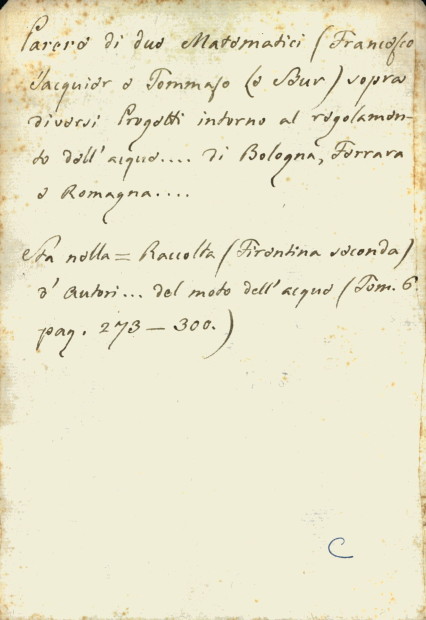 Parere di due Matematici (Francesco
Jacquier e Tommaso Le Seur) sopra
diversi Progetti intorno al regolamen-
to dell'acque.... di Bologna, Ferrara
e Romagna....
Sta nella = Raccolta (Fiorentina seconda)
d'Autori... del moto dell'acque (Tom. 6.
pag. 273 — 300.)
C